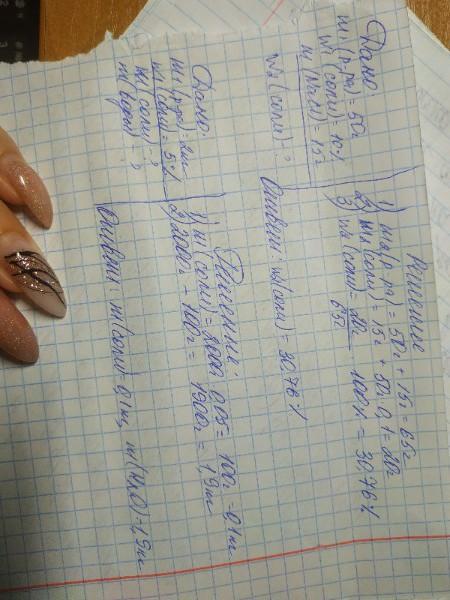 Дано:
m1(р-ра) = 50г
w1(соли) = 10%
m(NaCl) = 15г
w2(соли) - ?
Решение
1) m2(р-ра) = 50г + 15г = 65г
2) m2(соли) = 15г + 50·0,1 = 20г
3) w2(соли) = 20г/65г · 100% = 30,76%
Ответ: w(соли) = 30,76%
Дано:
m1(р-ра) = 2кг
w1(соли) = 5%
m(соли) - ?
m(воды) - ?
Решение:
1) m(соли) = 2000·0,05 = 100г = 0,1кг
2) 2000г - 100г = 1900г = 1,9кг
Ответ: m(соли) 0,1кг, m(H2O) = 1,9кг